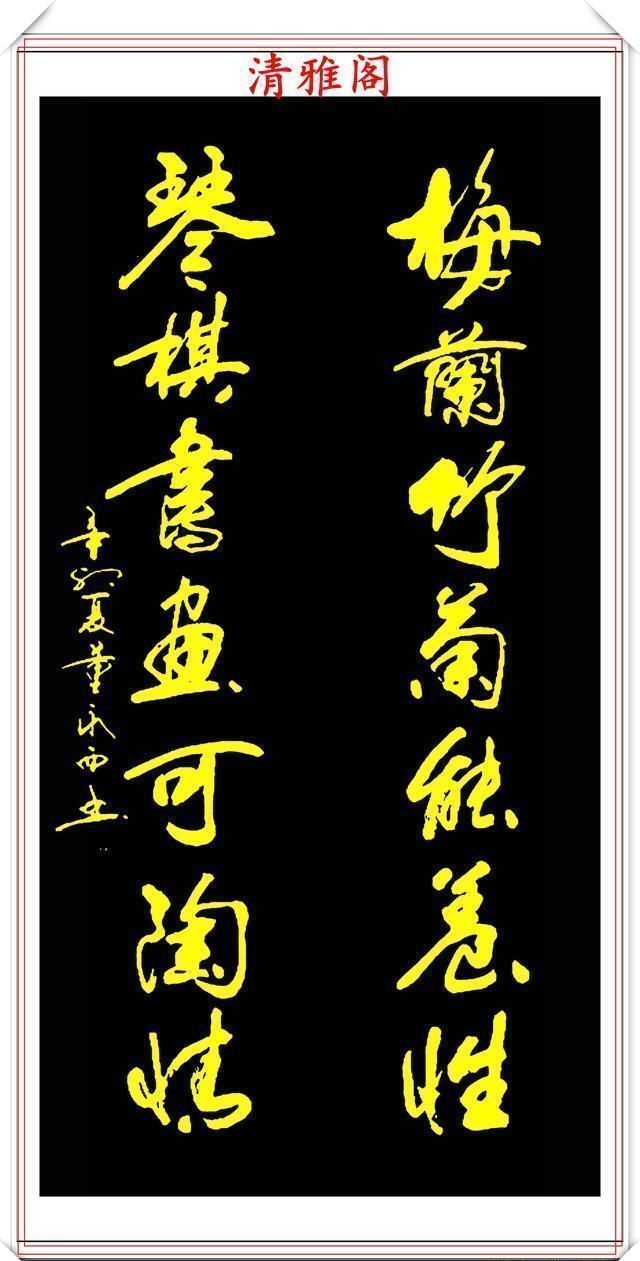 清雅阁
梅蘭竹菊能养性
琴棋書画可陶情
辛卯夏董永西書